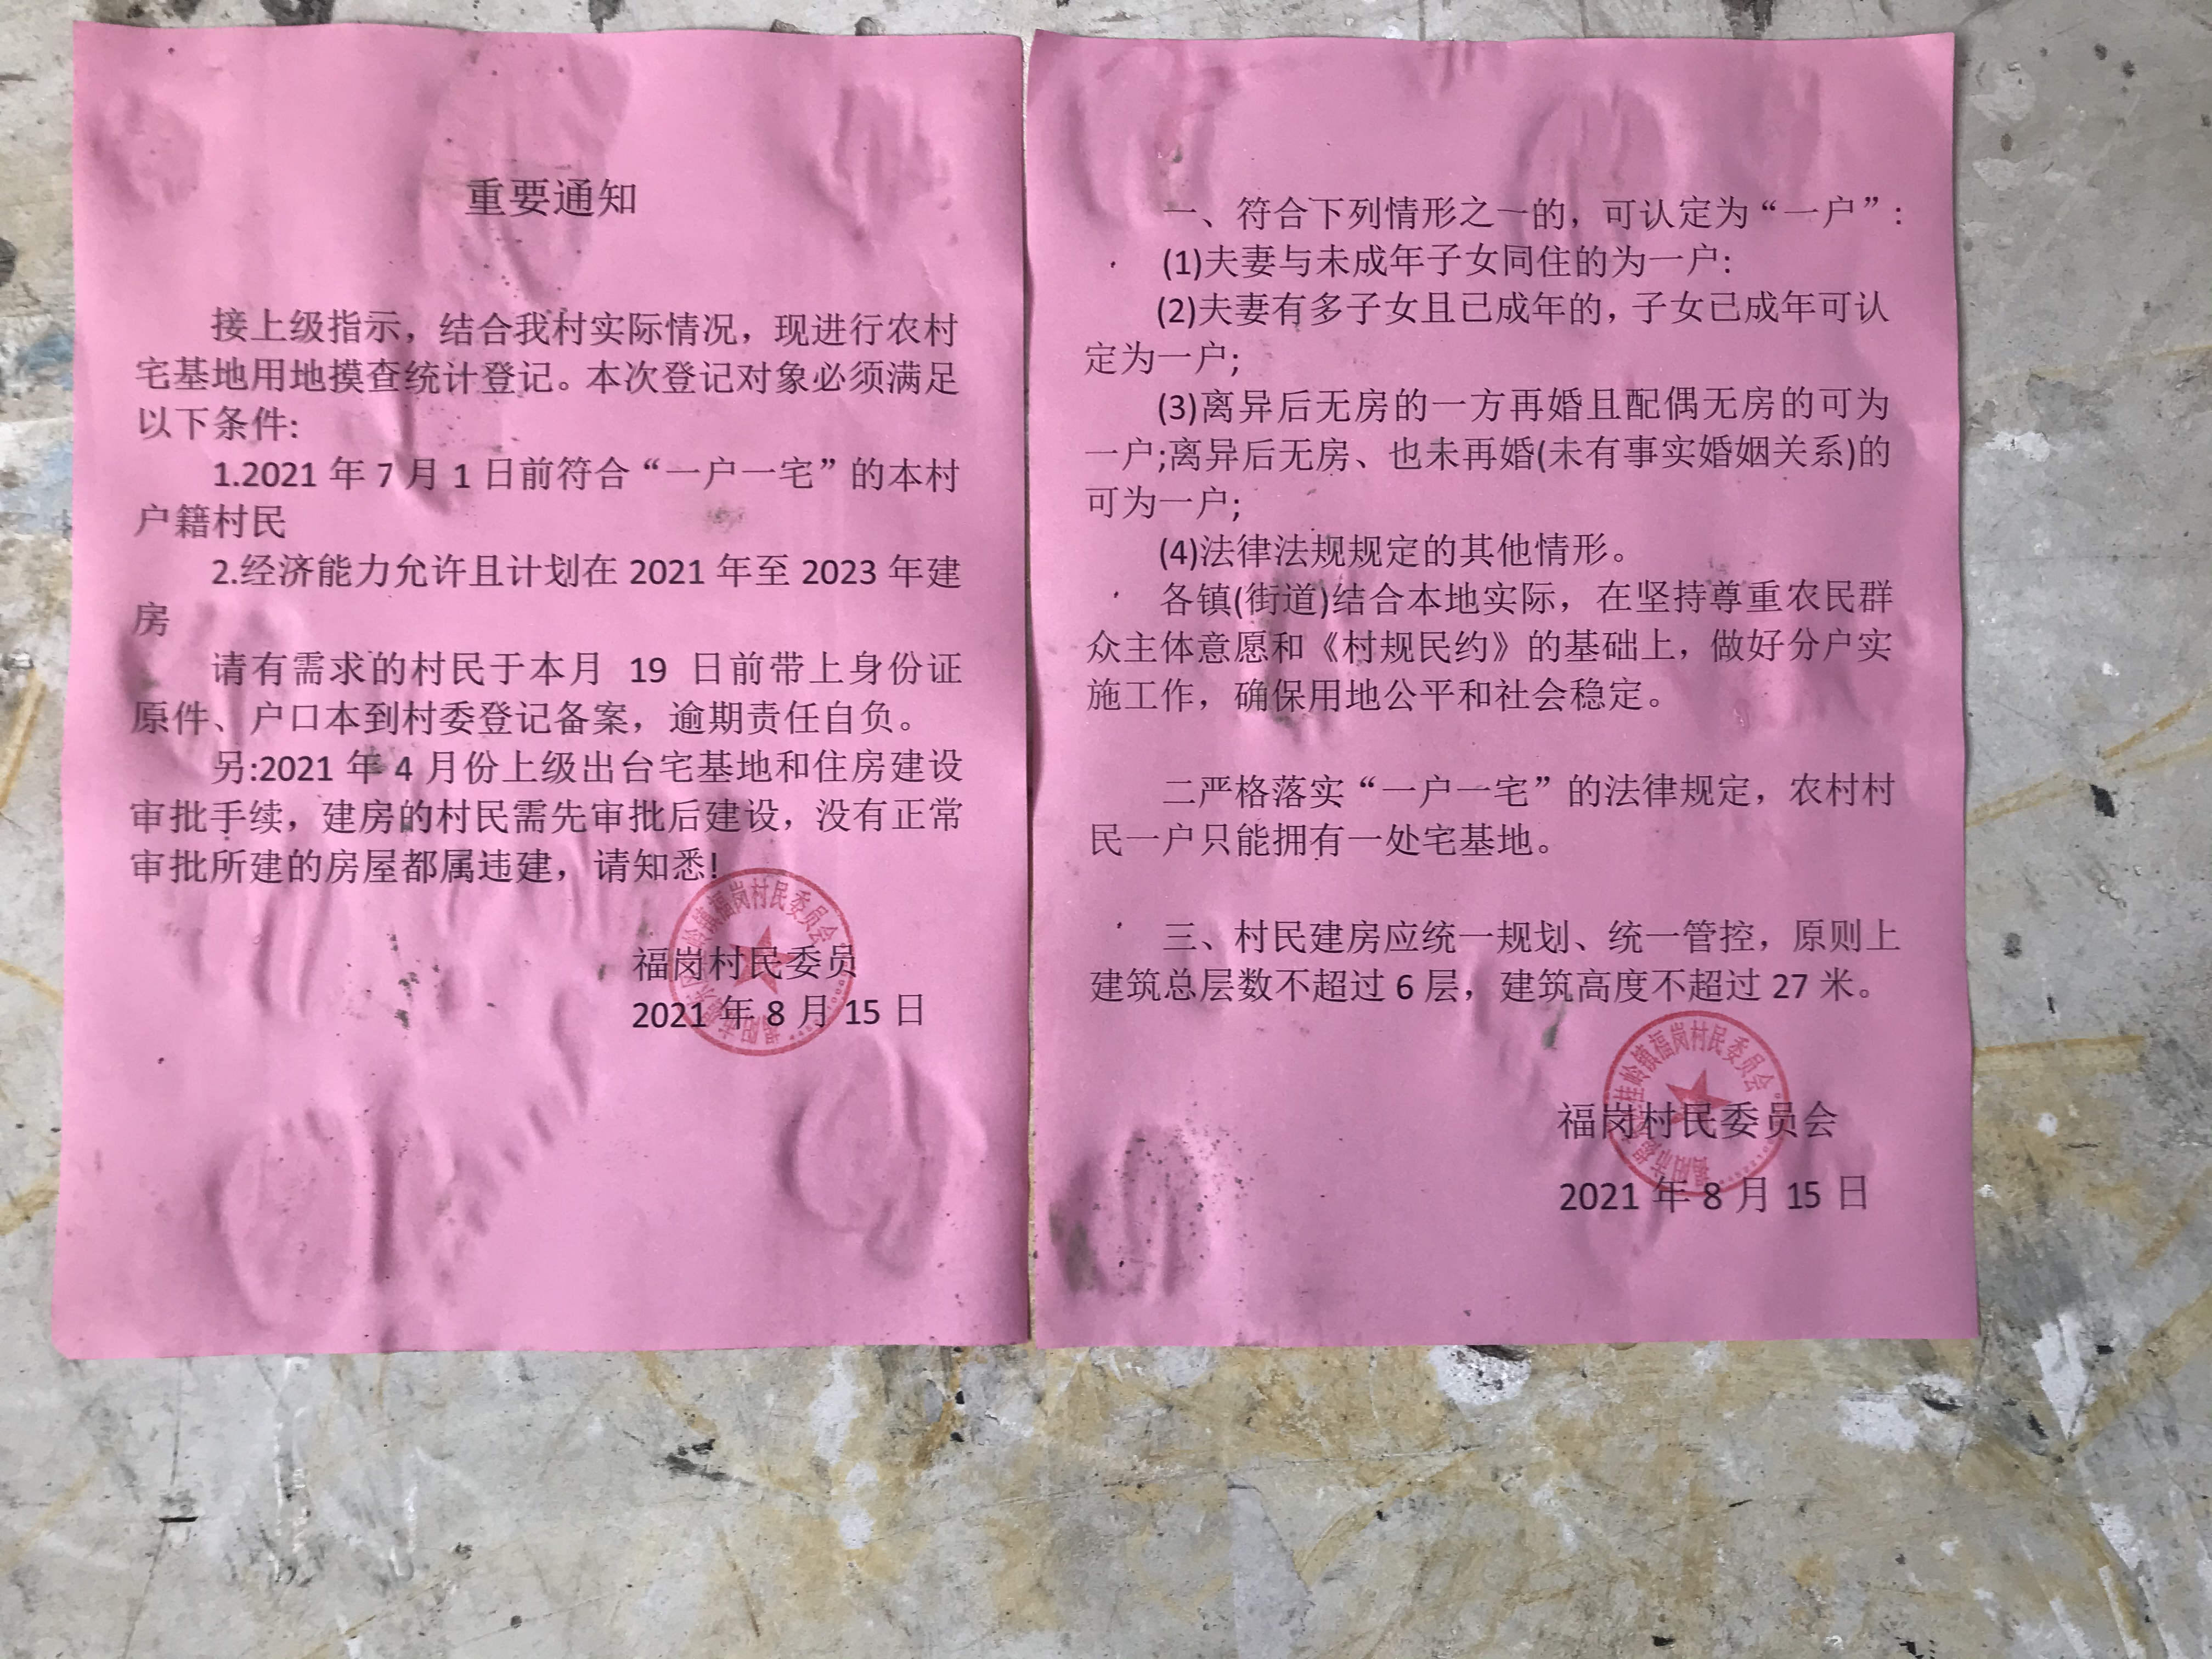 重要通知
接上级指示，结合我村实际情况，现进行农村
宅基地用地摸查统计登记。本次登记对象必须满足
以下条件:
1.2021 年 7 月 1 日前符合“一户一宅”的本村
户籍村民
2.经济能力允许且计划在 2021 年至 2023 年建
房
请有需求的村民于本月 19 日前带上身份证
原件、户口本到村委登记备案，逾期责任自负。
另:2021 年 4 月份上级出台宅基地和住房建设
审批手续，建房的村民需先审批后建设，没有正常
审批所建的房屋都属违建，请知悉!
福岗村民委员
2021 年 8 月 15 日
岭镇福岗村民委员会
一、符合下列情形之一的，可认定为“一户”:
(1)夫妻与未成年子女同住的为一户:
(2)夫妻有多子女且已成年的，子女已成年可认
定为一户;
(3)离异后无房的一方再婚且配偶无房的可为
一户;离异后无房、也未再婚(未有事实婚姻关系)的
可为一户;
(4)法律法规规定的其他情形。
各镇(街道)结合本地实际，在坚持尊重农民群
众主体意愿和《村规民约》的基础上，做好分户实
施工作，确保用地公平和社会稳定。
二严格落实“一户一宅”的法律规定，农村村
民一户只能拥有一处宅基地。
三、村民建房应统一规划、统一管控，原则上
建筑总层数不超过 6 层，建筑高度不超过 27 米。
福岗村民委员会
2021 年 8 月 15 日
桂岭镇福岗村民委员会